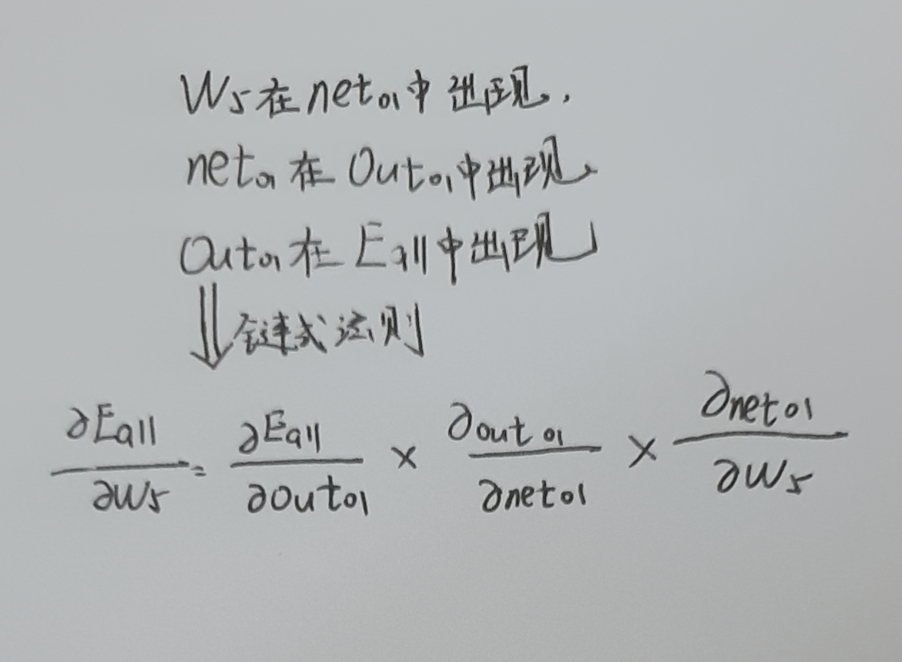 W₅在net₀₁中出现.
net₀₁在Out₀₁中出现
Out₀₁在Eall中出现
⇓链式法则
∂Eall/∂W₅ = ∂Eall/∂out₀₁ × ∂out₀₁/∂net₀₁ × ∂net₀₁/∂W₅